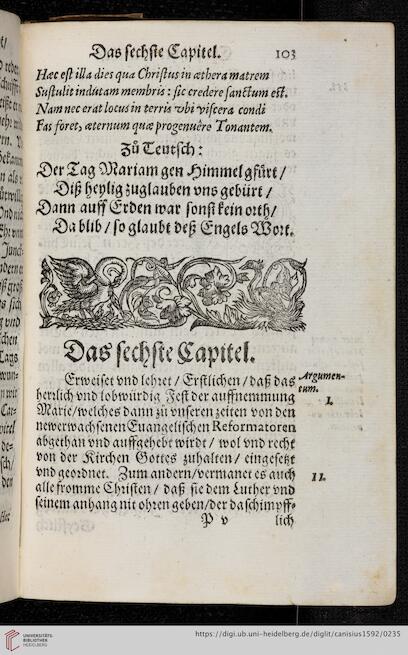 Das sechste Capitel. 103
Hæc est illa dies qua Christus in æthera matrem
Sustulit indutam membris: sic credere sanctum est.
Nam nec erat locus in terris vbi viscera condi
Fas foret, æternum quæ progenuêre Tonantem.
Zů Teutsch:
Der Tag Mariam gen Himmel gfürt/
Diß heylig zuglauben vns gebürt/
Dann auff Erden war sonst kein orth/
Da blib/ so glaubt deß Engels Wort.
Das sechste Capitel.
Erweiset vnd lehret/ Erstlichen/ daß das
herrlich vnd lobwürdig Fest der auffnemmung
Marie/welches dann zů vnseren zeiten von den
newerwachsenen Euangelischen Reformatoren
abgethan vnd auffgehebt wirdt/ wol vnd recht
von der Kirchen Gottes zuhalten/ eingesetzt
vnd geordnet. Zum andern/vermanet es auch
alle fromme Christen/ daß sie dem Luther vnd
seinem anhang nit ohren geben/der da schimpff-
P v lich
Argumen-
tum.
I.
II.
UNIVERSITÄTS-
BIBLIOTHEK
HEIDELBERG
https://digi.ub.uni-heidelberg.de/diglit/canisius1592/0235